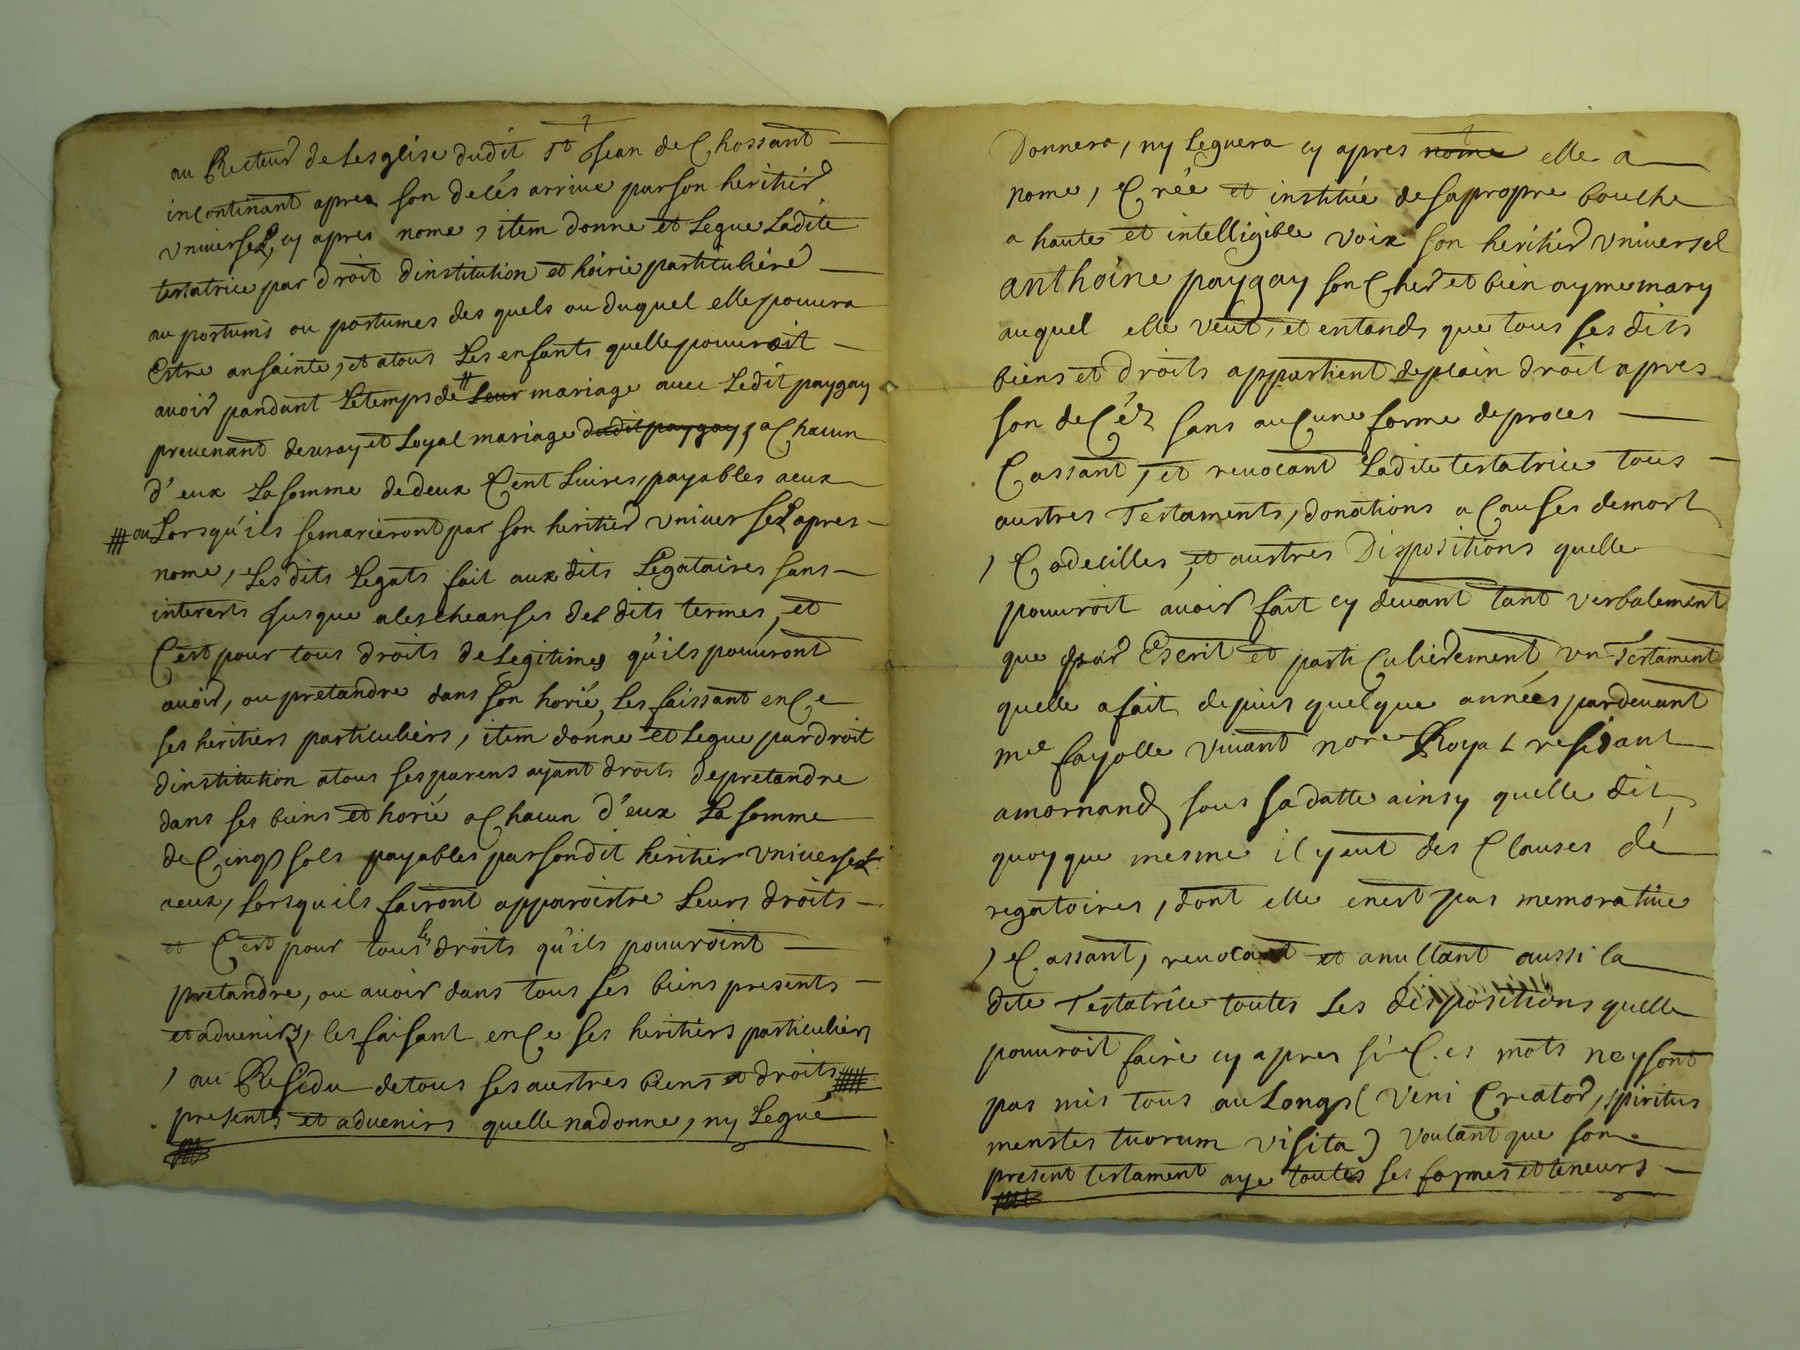 au Recteur de Lesglise dudit St Jean de Chossant
incontinant apres son decés arrive par son heritier
universel, cy apres nome, item donne et Legue Ladite
testatrice par droit dinstitution et hoirie particuliere
au postumis ou postumes des quels ou duquel elle pouura
Estre ansainte, et atous Les enfants quelle pouuroit
avoir pandant Letemps de leur mariage avec Ledit paygay
prevenant devray et Loyal mariage dudit paygay, a Chacun
d'eux La somme dedeux Cent Livres, payables aeux
ou Lorsqu'ils semarieront par son heritier universel apres
nome, Les dits Legats fait aux dits Legataires sans
interests Jusque alescheanses des dits termes, et
C'est pour tous droits de Legitimes qu'ils pouuront
avoir, ou pretandre dans son horié, Les faissant en Ce
ses heritiers particuliers, item donne et Legue par droit
dinstitution atous ses parens ayant droits depretandre
dans ses biens et horié a Chacun d'eux La somme
de Cinq sols payables par sondit heritier universel
aeux, Lorsqu'ils fairont apparoistre Leurs droits
et C'est pour tous les droits qu'ils pouuroint
pretandre, ou avoir dans tous ses biens presents
et advenirs, les faisant en Ce ses heritiers particuliers
, au Residu detous ses austres biens et droits
presents et advenirs quelle nadonne, ny Legué
Donnera, ny Leguera cy apres nome elle a
nome, Crée et institué desapropre bouche
a haute et intelligible voix son heritier universel
anthoine paygay son Cher et bien ayme mary
auquel elle veut, et entands que tous ses dits
biens et droits appartient deplain droit apres
son decés sans auCune forme deproces
Cassant, et revocant Ladite testatrice tous
austres Testaments, donations a Causes demort
, Codecilles, et austres Dispositions quelle
pouuroit avoir fait cy devant tant verbalement
que par Escrit et partiCulierement un Testament
quelle afait depuis quelque années pardevant
me fayolle vivant nore Royal residant
amornand sous sadatte ainsy quelle dit,
quoyque mesme il y eut des Clauses dé
regatoires, dont elle enest pas memorative
, Cassant, revocant et anullant aussi la
dite Testatrice toutes Les dispositions quelle
pouuroit faire cy apres si Ces mots ney sont
pas mis tous au Long (Veni Creator, spiritus
menstes tuorum visita) voulant que son
present testament aye toutes ses formes et teneurs